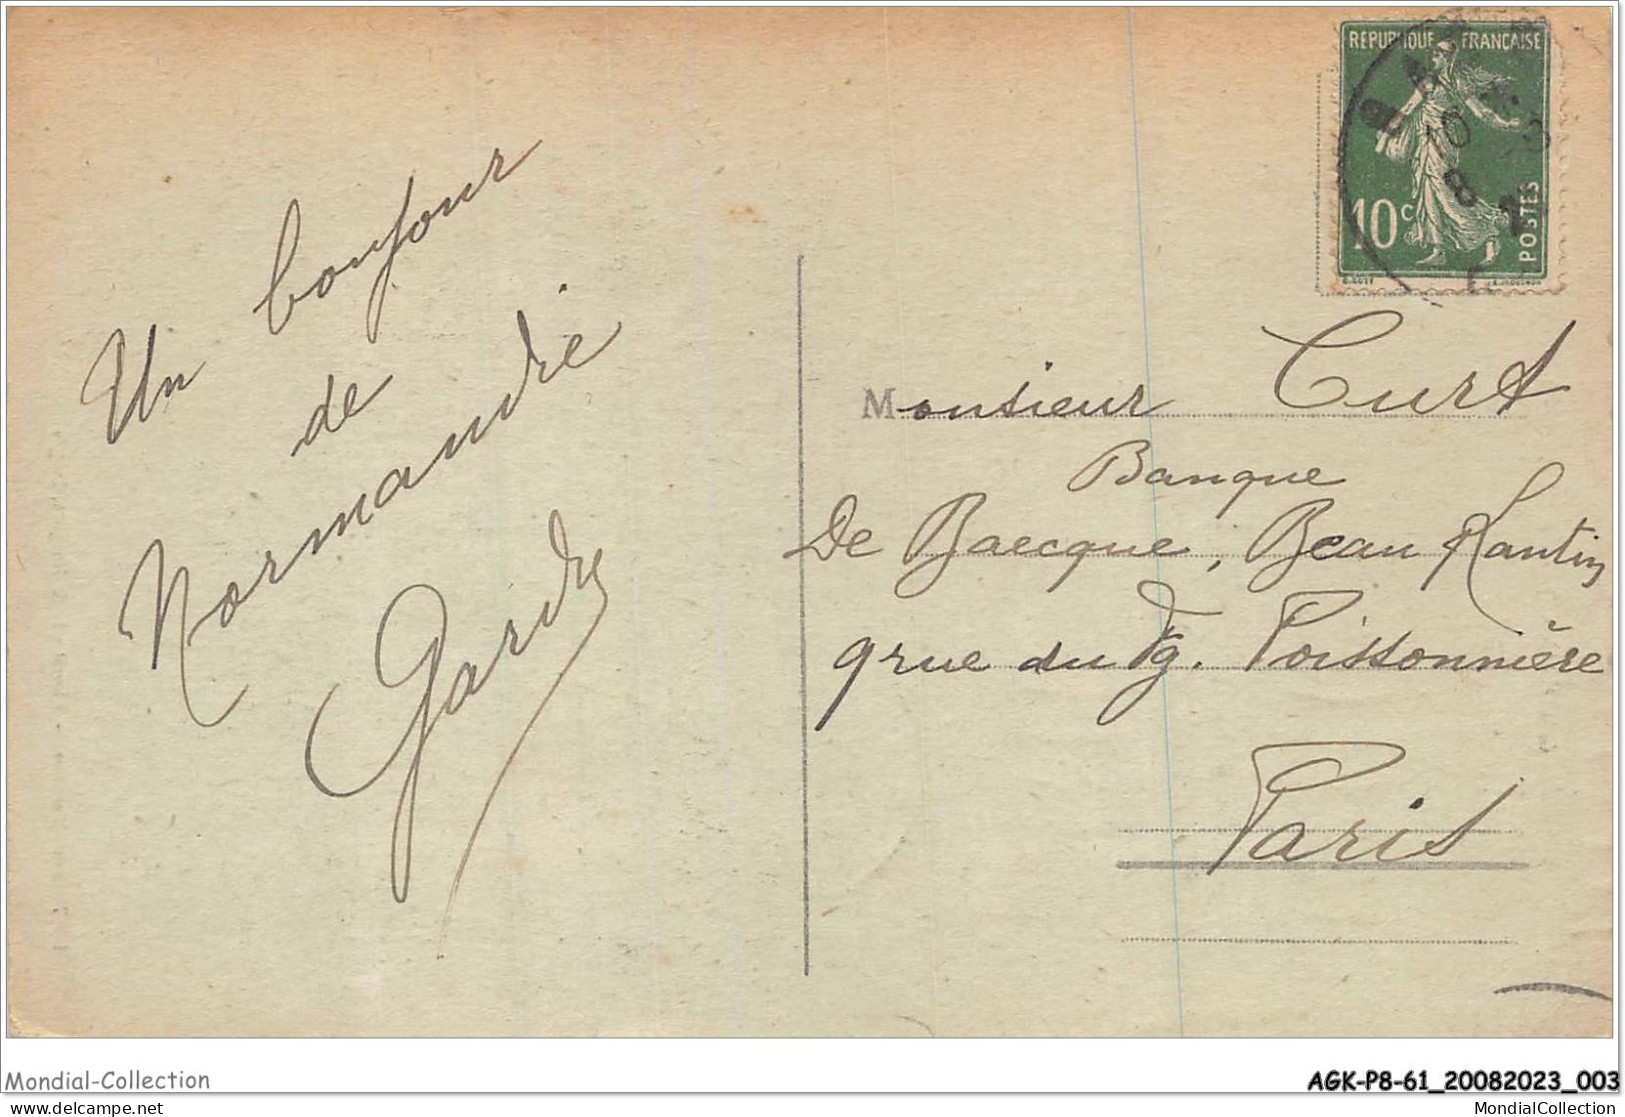 Un bonjour
de
Normandie
RÉPUBLIQUE FRANÇAISE
10c
POSTES
Monsieur Curt
Banque
De Baecque, Beau Lantin
9 rue du Fg. Poissonnière
Paris
Mondial-Collection
AGK-P8-61_20082023_003
delcampe.net
MondialCollection